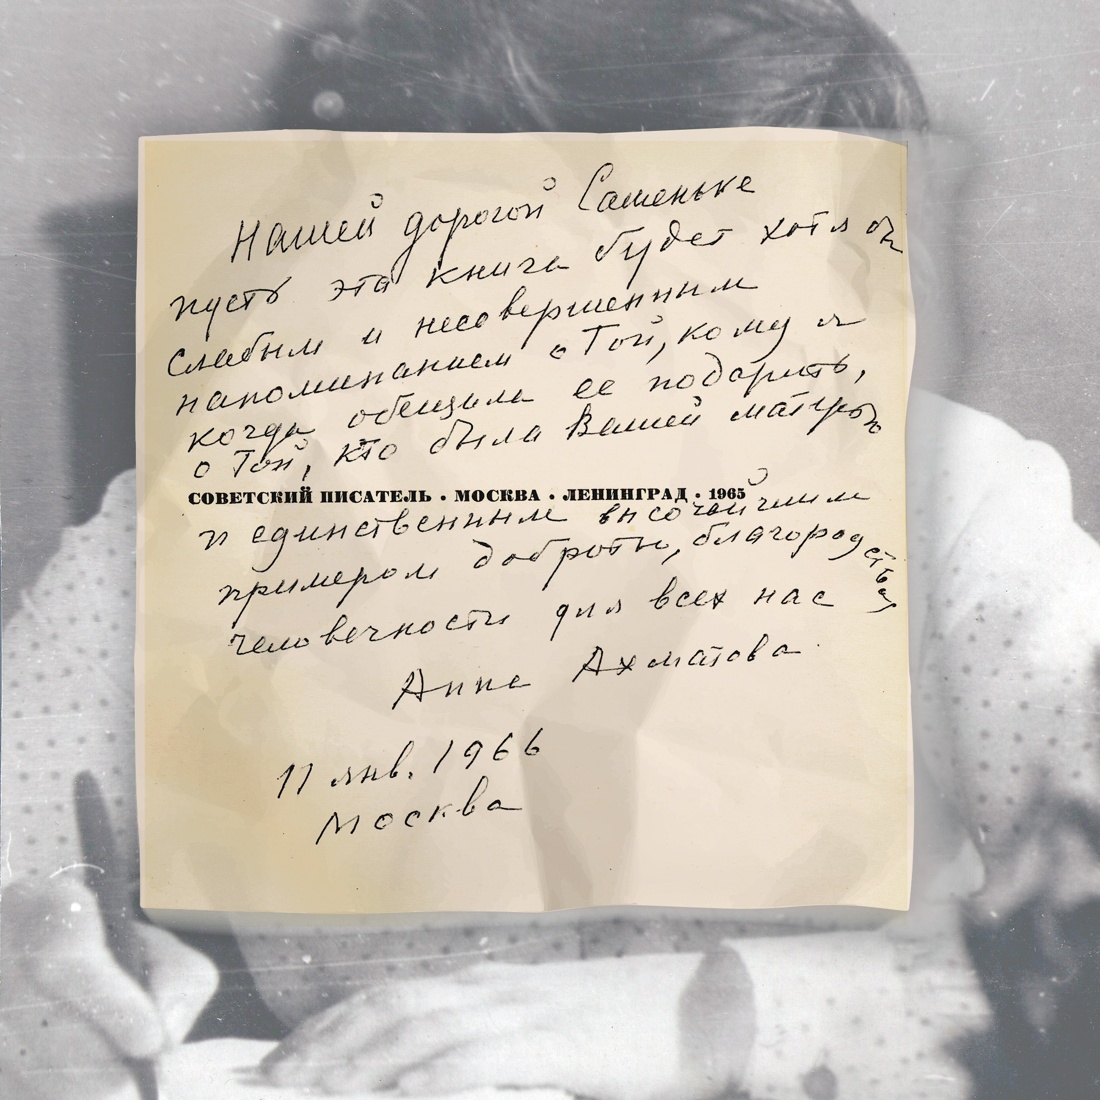 Нашей дорогой Сашеньке
пусть эта книга будет хотя бы
слабым и несовершенным
напоминанием о Той, кому я
когда обещала ее подарить,
о Той, кто была Вашей матерью
СОВЕТСКИЙ ПИСАТЕЛЬ · МОСКВА · ЛЕНИНГРАД · 1965
и единственным высочайшим
примером доброты, благородства,
человечности для всех нас
Анна Ахматова
11 янв. 1966
Москва